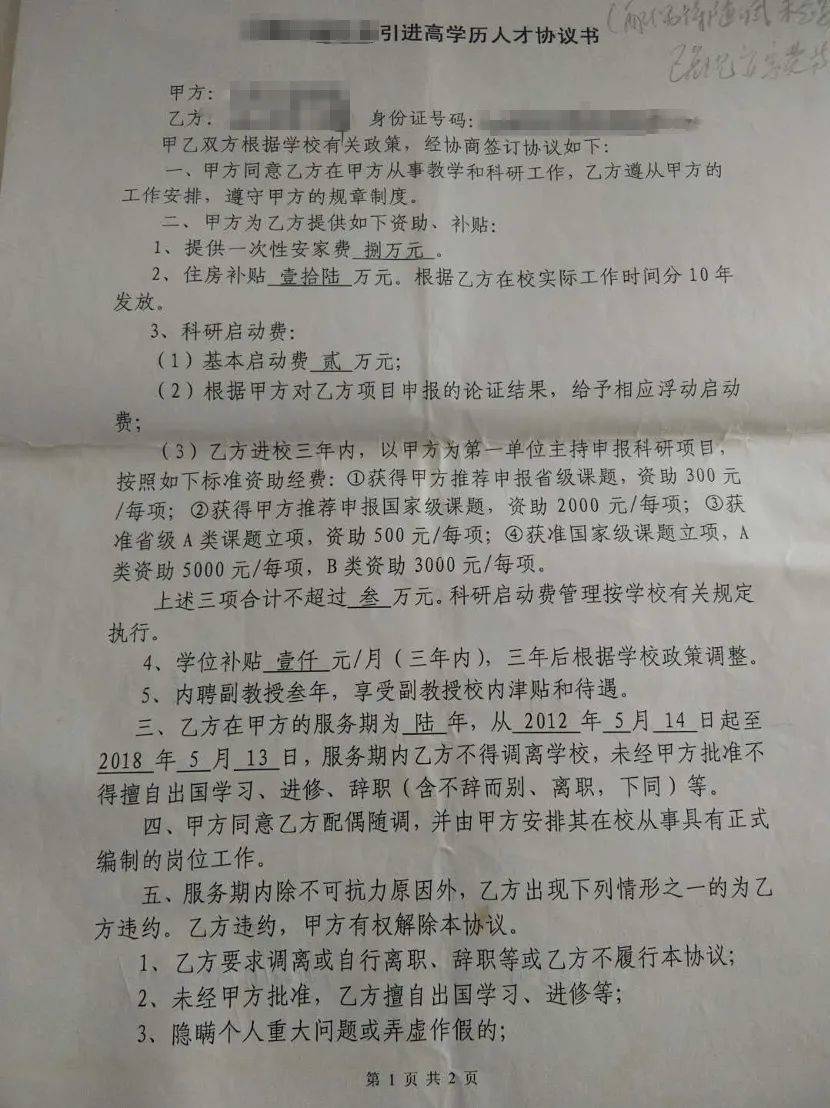 引进高学历人才协议书
甲方：
乙方： 身份证号码：
甲乙双方根据学校有关政策，经协商签订协议如下：
一、甲方同意乙方在甲方从事教学和科研工作，乙方遵从甲方的
工作安排，遵守甲方的规章制度。
二、甲方为乙方提供如下资助、补贴：
1、提供一次性安家费 捌万元 。
2、住房补贴 壹拾陆 万元。根据乙方在校实际工作时间分10年
发放。
3、科研启动费：
（1）基本启动费 贰 万元；
（2）根据甲方对乙方项目申报的论证结果，给予相应浮动启动
费；
（3）乙方进校三年内，以甲方为第一单位主持申报科研项目，
按照如下标准资助经费：①获得甲方推荐申报省级课题，资助300元
/每项；②获得甲方推荐申报国家级课题，资助2000元/每项；③获
准省级A类课题立项，资助500元/每项；④获准国家级课题立项，A
类资助5000元/每项，B类资助3000元/每项。
上述三项合计不超过 叁 万元。科研启动费管理按学校有关规定
执行。
4、学位补贴 壹仟 元/月（三年内），三年后根据学校政策调整。
5、内聘副教授叁年，享受副教授校内津贴和待遇。
三、乙方在甲方的服务期为 陆 年，从 2012 年 5 月 14 日起至
2018 年 5 月 13 日，服务期内乙方不得调离学校，未经甲方批准不
得擅自出国学习、进修、辞职（含不辞而别、离职，下同）等。
四、甲方同意乙方配偶随调，并由甲方安排其在校从事具有正式
编制的岗位工作。
五、服务期内除不可抗力原因外，乙方出现下列情形之一的为乙
方违约。乙方违约，甲方有权解除本协议。
1、乙方要求调离或自行离职、辞职等或乙方不履行本协议；
2、未经甲方批准，乙方擅自出国学习、进修等；
3、隐瞒个人重大问题或弄虚作假的；
第 1 页 共 2 页